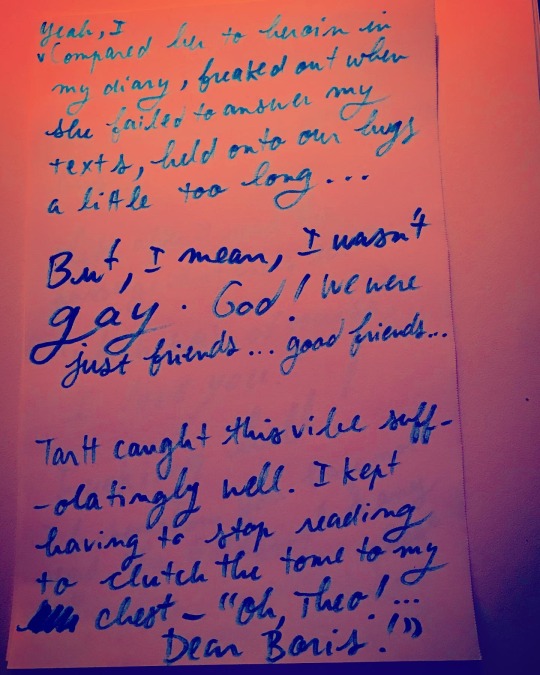 Yeah, I
Compared her to heroin in
my diary, freaked out when
she failed to answer my
texts, held onto our hugs
a little too long...
But, I mean, I wasn't
gay. God! We were
just friends... good friends...
Tartt caught this vibe suff-
-olatingly well. I kept
having to stop reading
to clutch the tome to my
chest - "Oh, Theo!...
Dear Boris!"